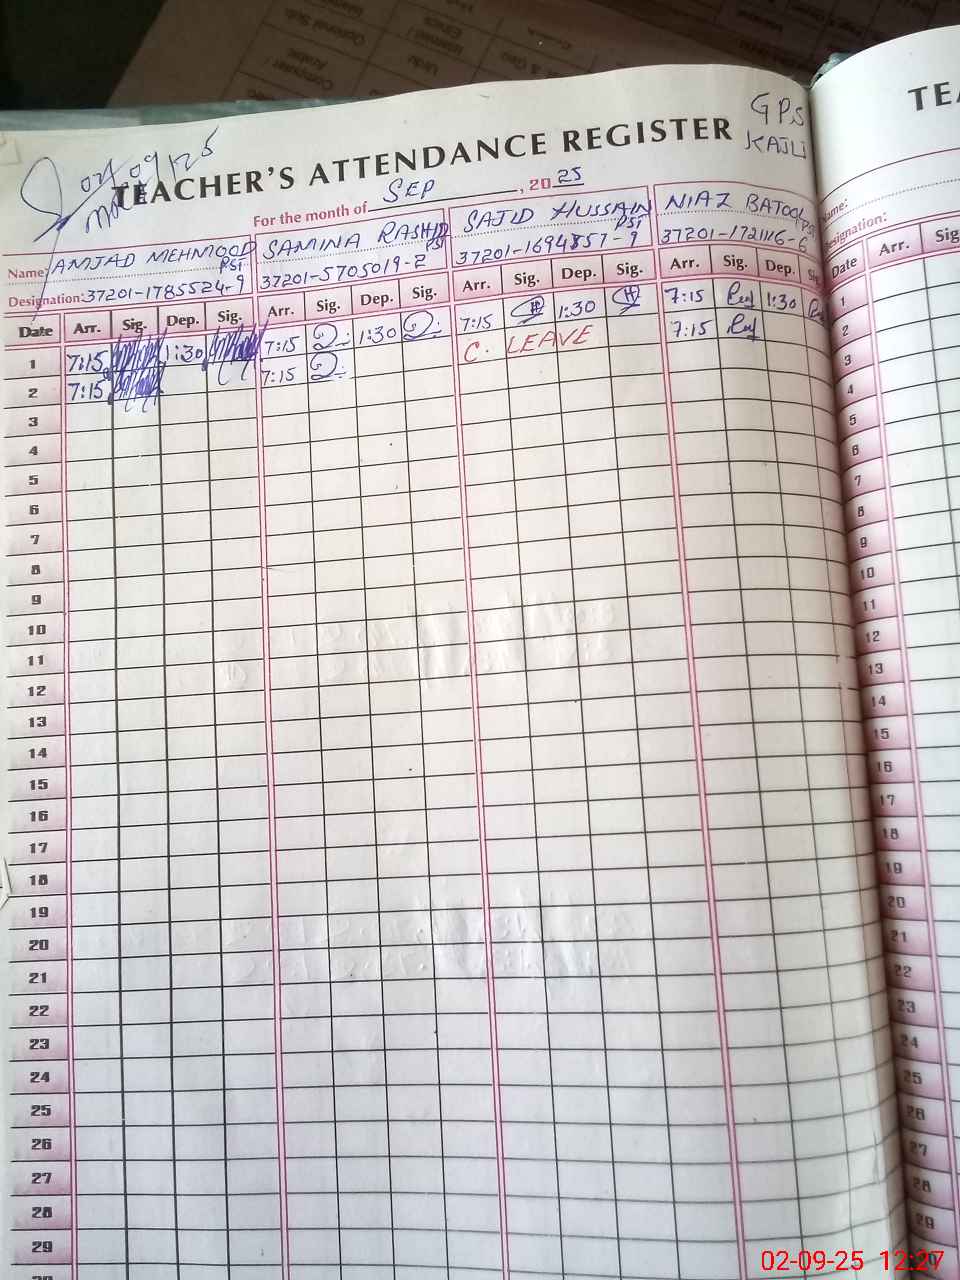 GPS
KAJLI
02/09/25
TEACHER'S ATTENDANCE REGISTER
For the month of SEP, 2025
Name: AMJAD MEHMOOD PST
SAMINA RASHID PST
SAJID HUSSAIN PST
NIAZ BATOOL PST
Designation: 37201-1785524-9
37201-5705019-2
37201-1694857-9
37201-172116-6
Date Arr. Sig. Dep. Sig. Arr. Sig. Dep. Sig. Arr. Sig. Dep. Sig. Arr. Sig. Dep.
1 7:15 1:30 7:15 1:30 7:15 1:30 7:15 1:30
2 7:15 7:15 C. LEAVE 7:15
3
4
5
6
7
8
9
10
11
12
13
14
15
16
17
18
19
20
21
22
23
24
25
26
27
28
29
Name:
Designation:
Date Arr.
1
2
3
4
5
6
7
8
9
10
11
12
13
14
15
16
17
18
19
20
21
22
23
24
25
26
27
28
29
02-09-25 12:27